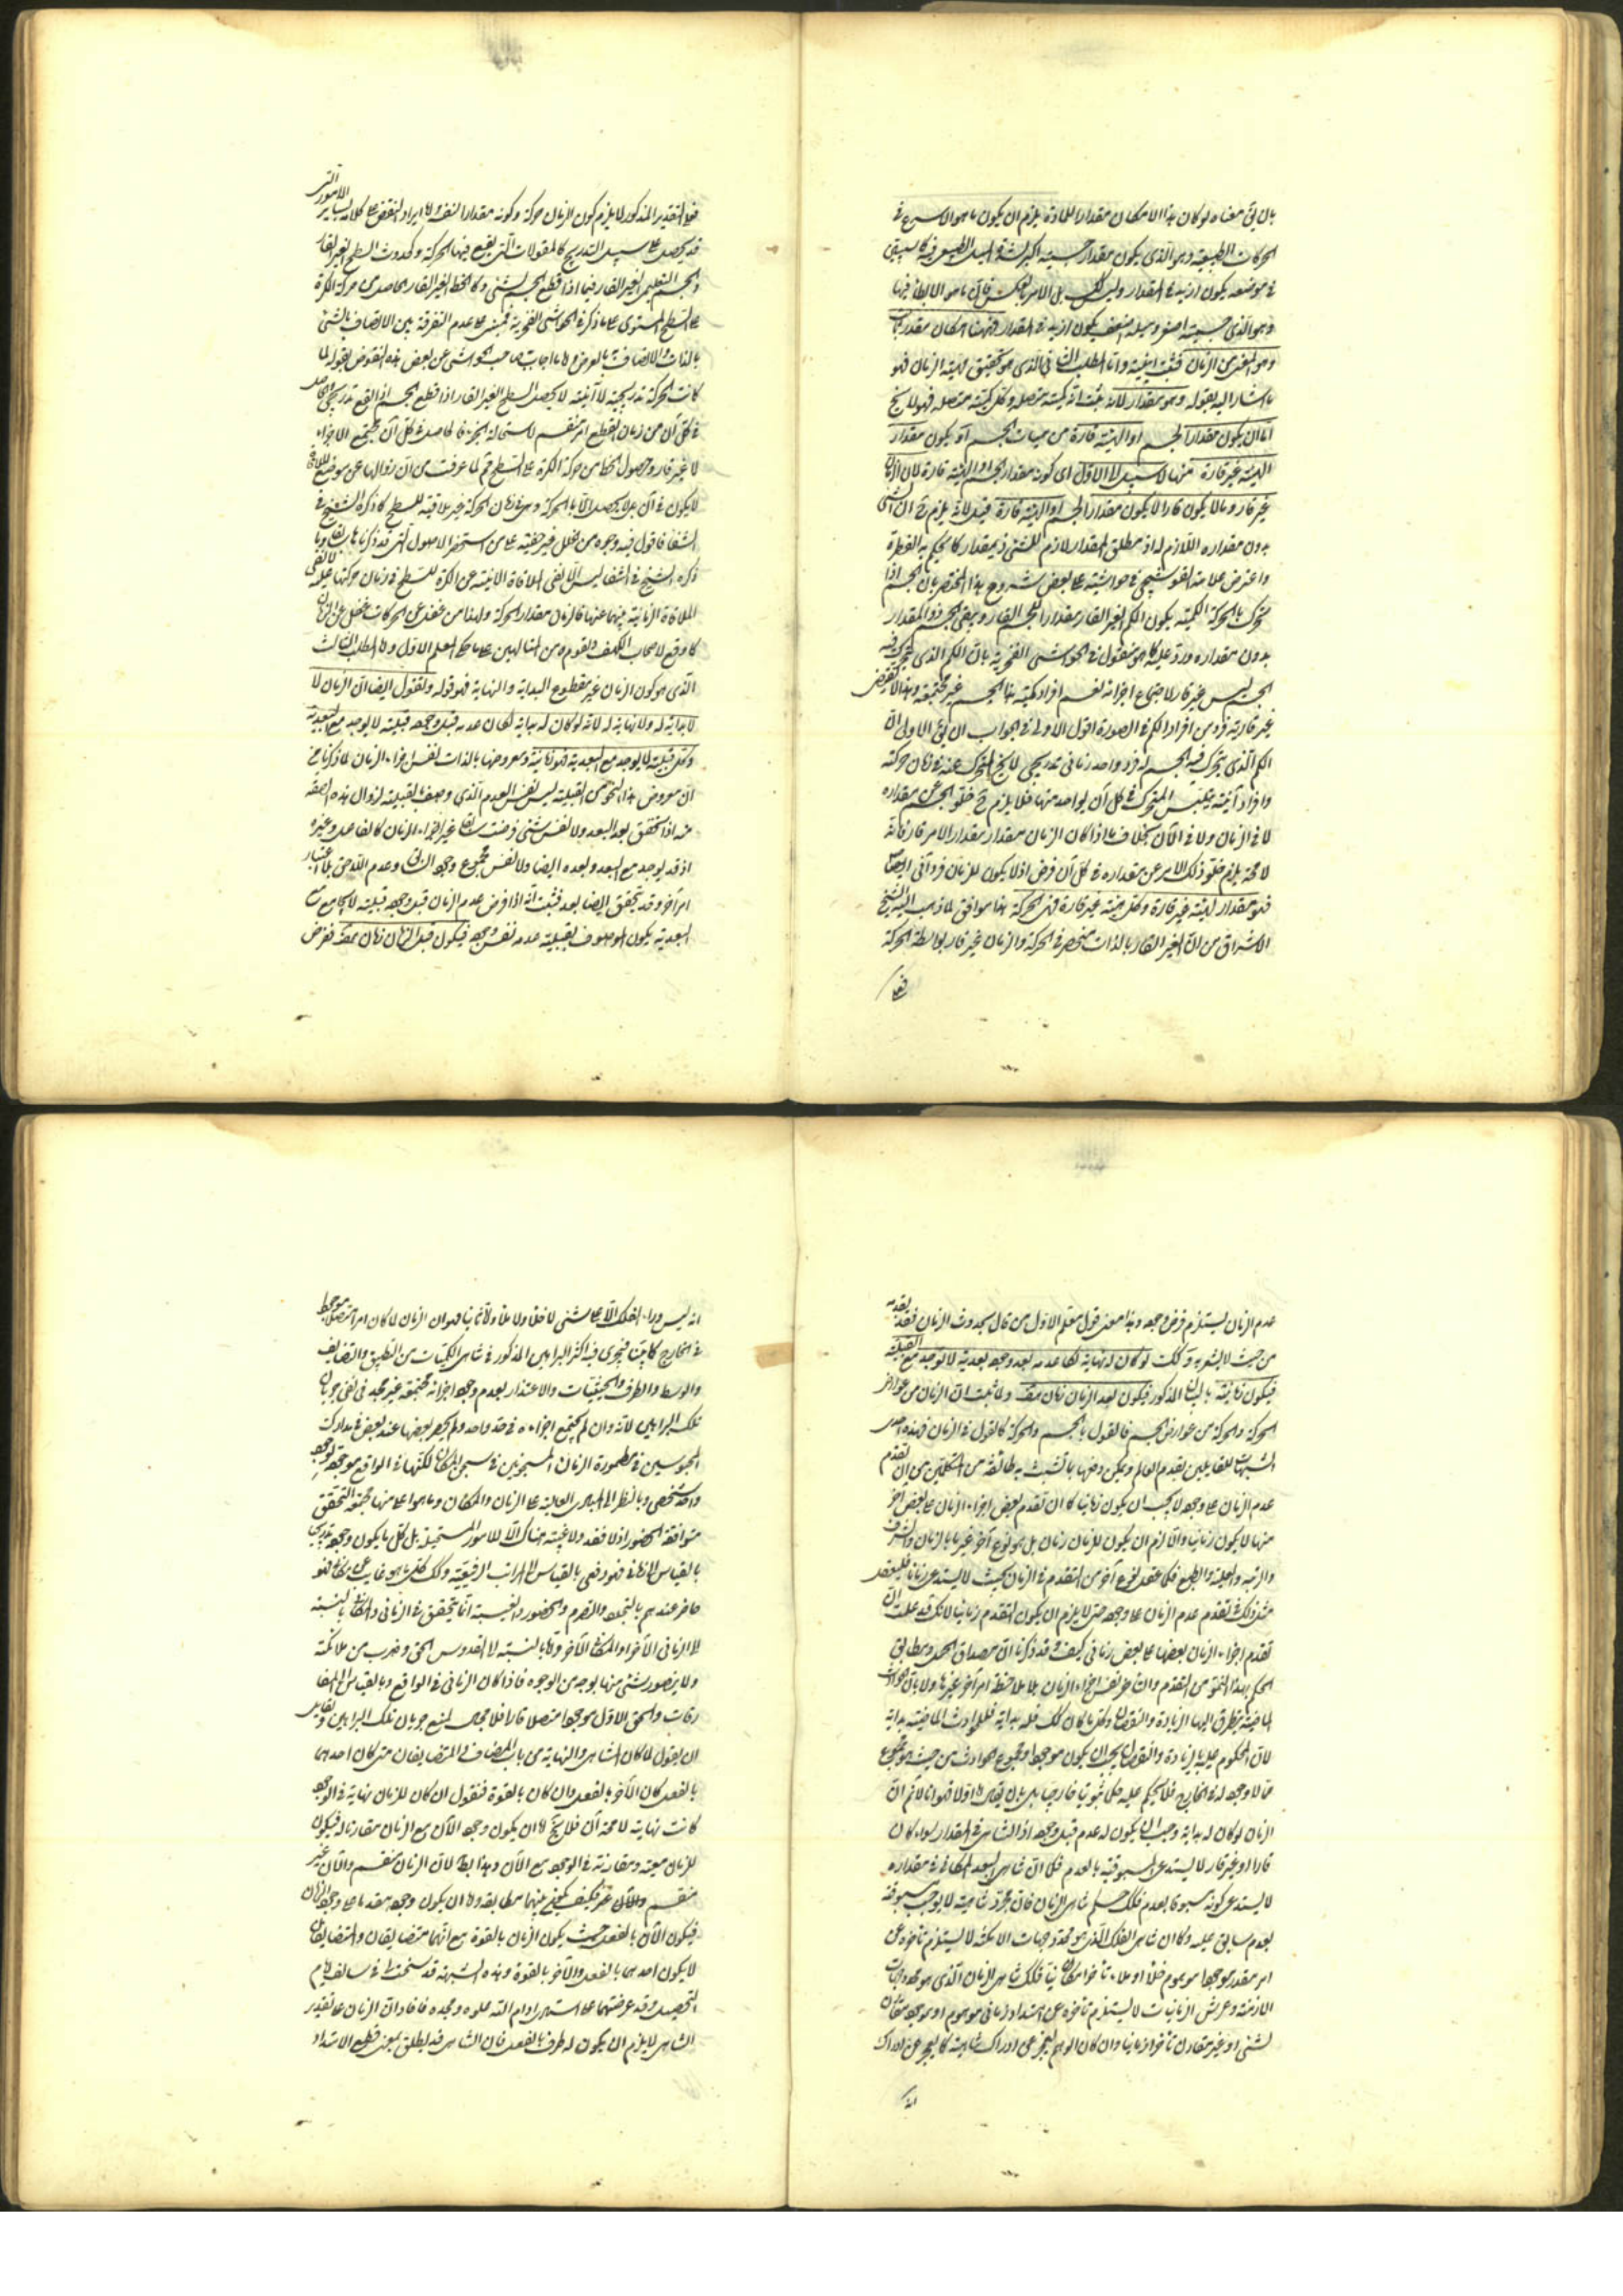 بان يق معناه لو كان هذا الامكان مقدارا للمادة يلزم ان يكون ما هو الاسرع في
الحركات الطبيعية وهو الذي يكون مقدار جسميته اكبر الميل الطبيعي فيه كما سيجيء
في موضعه يكون ازيد في المقدار وليس كك بل الامر بالعكس فان ما هو الابطأ فيها
وهو الذي جسميته اصغر وميله اضعف يكون ازيد في المقدار فههنا امكان مقدر
وهو المعنى من الزمان فثبت انيته واما المطلب الثاني الذي هو تحقيق مهية الزمان فهو
ما اشار اليه بقوله وهو مقدار لانه ثبت انه كمية متصلة وكل كمية متصلة فهو لا يخ
اما ان يكون مقدارا لجسم او لهيئة قارة من هيئات الجسم او يكون مقدار
لهيئة غير قارة منها لا سبيل الى الاول اى كونه مقدار الجسم او الهيئة قارة لان الزمان
غير قار وما لا يكون قارا لا يكون مقدار الجسم او لهيئة قارة قيل لانه يلزم ح ان الشئ
بدون مقداره اللازم له اذ مطلق المقدار لازم للشئ ذي مقدار كما يحكم به الفطرة
واعترض علامة القوشجي في حواشيه على بعض شروح هذا المختصر بان الجسم اذا
تحرك بالحركة الكمية يكون الكم الغير القار مقدارا للجسم القار ويبقى الجسم ذو المقدار
بدون مقداره ورد عليه كما هو منقول في الحواشي الفخرية بان الكم الذي يتحرك فيه
الجسم ليس غير قار لاجتماع اجزائه نعم افراد كمية هذا الجسم غير مجتمعة وهذا لا يقتضي
غير قارية فرد من افراد الكم في الصورة اقول الاولى في الجواب ان يق الاولى ان
الكم الذي يتحرك فيه الجسم له فرد واحد زماني تدريجي لا يخ المتحرك عنه في زمان حركته
وافراد آنية يتلبس المتحرك في كل آن بواحد منها فلا يلزم ح خلو الجسم عن مقداره
لا في الزمان ولا في الآن بخلاف ما اذا كان الزمان مقدار مقدار الامر قار فانه
لا محة يلزم خلو ذلك الامر عن مقداره في كل آن فرض اذ لا يكون للزمان فرد آني ايضا
فهو مقدار لهيئة غير قارة وكل هيئة غير قارة فهى الحركة هذا موافق لما ذهب اليه الشيخ
الاشراق من ان الغير القار بالذات منحصر في الحركة والزمان غير قار بواسطة الحركة
فعلى
فعلى التقدير المذكور لا يلزم كون الزمان حركة وكونه مقدارا لنفسه واما ايراد النقض على كلامه بساير الامور التي
قد يحصل على سبيل التدريج كالمقولات التي يقع فيها الحركة وكحدوث السطح الغير القار
والجسم التعليمي الغير القار فيما اذا قطع الجسم بشئ وكالخط الغير القار الحاصل من حركة الكرة
على السطح المستوى على ما ذكر في الحواشي الفخرية فمبنى على عدم التفرقة بين الاتصاف بالشئ
بالذات والاتصاف به بالعرض واما ما اجاب به صاحب الحواشي عن بعض هذه النقوض بقوله لما
كانت الحركة تدريجية لا آنية لا يحصل السطح الغير القار اذا قطع الجسم اذ القطع تدريجي
في كل آن من زمان القطع امر منقسم لاستحالة الجزء فالحاصل في كل آن مجتمع الاجزاء
لا غير قار وحصول الخط من حركة الكرة على السطح ثم لما عرفت من ان زوالها عن موضع الملاقاة
لا يكون في آن بل لا يحصل الا بالحركة وهى في زمان الحركة غير ملاقية للسطح كما ذكره الشيخ في
الشفا فاقول فيه وجوه من الخلل غير خفية على من استحضر الاصول التي قد ذكرناها سابقا وما
ذكره الشيخ في الشفا ليس الا نفى الملاقاة الآنية عن الكرة للسطح في زمان حركتها عليه لا نفى
الملاقاة الزمانية بينهما عنها فالزمان مقدار الحركة ولهذا من غفل عن الحركات غفل عن الزمان
كما وقع لاصحاب الكهف ولقوم من المتألهين على ما حكاه المعلم الاول واما المطلب الثالث
الذي هو كون الزمان غير مقطوع البداية والنهاية فهو قوله ونقول ايضا ان الزمان لا
لا بداية له ولا نهاية له لانه لو كان له بداية لكان عدمه قبل وجوده قبلية لا يوجد مع البعدية
وكل قبلية لا يوجد مع البعدية فهو زمانية ومعروضها بالذات نفس اجزاء الزمان لما ذكرنا من
ان معروض هذا النحو من القبلية ليس نفس العدم الذي وصف بالقبلية لزوال هذه الصفة
عنه اذا تحقق بعد البعد ولا نفس شئ فرضت سابقا غير اجزاء الزمان كالفاعل وغيره
اذ قد يوجد مع البعد وبعده ايضا ولا نفس مجموع وجود السابق وعدم اللاحق بلا اعتبار
امر آخر وقد تحقق ايضا بعد فثبت انه اذا فرض عدم الزمان قبل وجوده قبلية لا يجامع مع
البعدية يكون الموصوف بالقبلية عدمه نفس وجوده فيكون قبل الزمان زمان هف ففرض
عدم الزمان يستلزم فرض وجوده وهذا معنى قول معلم الاول من قال بحدوث الزمان فقد قال بقدمه
من حيث لا يشعر به وكك لو كان له نهاية لكان عدمه بعد وجوده بعدية لا توجد مع القبلية
فيكون زمانية بالبيان المذكور فيكون بعد الزمان زمان هف ولما ثبت ان الزمان من عوارض
الحركة والحركة من عوارض الجسم فالقول بالجسم والحركة كالقول في الزمان فهذه احدى
الشبهات للقائلين بقدم العالم ويمكن دفعها بما تشبث به طائفة من المتكلمين من ان تقدم
عدم الزمان على وجوده لا يجب ان يكون زمانيا كما ان تقدم بعض اجزاء الزمان على بعض آخر
منها لا يكون زمانيا والا لزم ان يكون للزمان زمان بل هو نوع آخر غير ما بالزمان والشرف
والرتبة والعلية والطبع فكما عقل نوع آخر من التقدم في الزمان بحيث لا يستدعى زمانا فليعقل
مثل ذلك في تقدم عدم الزمان على وجوده حتى لا يلزم ان يكون المتقدم زمانيا لانك قد علمت ان
تقدم اجزاء الزمان بعضها على بعض زماني كيف وقد ذكرنا ان مصداق الحمل ومطابق
الحكم بهذا النحو من التقدم والتاخر نفس اجزاء الزمان بلا ملاحظة امر آخر غيرها ولا بان حوادث
الماضية يتطرق اليها الزيادة والنقصان وكل ما كان كك فله بداية فللحوادث الماضية بداية
لان المحكوم عليه بالزيادة والنقصان يجب ان يكون موجودا ومجموع الحوادث من حيث هو مجموع
مما لا وجود له في الخارج فلا يحكم عليه حكما ثبوتيا خارجيا بل بان يقال اولا فهو انا لا نم ان
الزمان لو كان له بداية وجب ان يكون له عدم قبل وجوده اذ التناهى في المقدار سواء كان
قارا او غير قار لا يستدعى المسبوقية بالعدم فكما ان تناهى البعد المكاني في مقداره
لا يستدعى كونه مسبوقا بعدم فكك حكم تناهى الزمان فان مجرد تناهيه لا يوجب مسبوقيته
بعدم سابق عليه وكما ان تناهى الفلك الذي هو محدد جهات الامكنة لا يستلزم تأخره عن
امر مقدر موجود او موهوم خلأ او ملاء تأخرا مكانيا فكك تناهى الزمان الذي هو محدد جهات
الازمنة وعرش الزمانيات لا يستلزم تأخره عن امتداد زماني موهوم او موجود مقارن
لشئ او غير مقارن تأخرا زمانيا وان كان الوهم يعجز عن ادراك تناهيه كما يعجز عن ادراك
انه
انه ليس وراء الفلك الاعلى شئ لا خلأ ولا ملأ واما ثانيا فهو ان الزمان لما كان امرا متصلا موجودا
في الخارج كما بينا فيجرى فيه اكثر البراهين المذكور في تناهى الكميات من التطبيق والتضايف
والوسط والطرف والحيثيات والاعتذار بعدم وجود اجزائه مجتمعة غير مجد في نفى جريان
تلك البراهين لانه وان لم يجتمع اجزاءه في حد واحد ولم يحضر بعضها عند بعض في مدارك
المحبوسين في مطمورة الزمان المسجونين في سجن المكان لكنها في الواقع موجود بوجود
واحد شخصي وبالنظر الى المبادى العالية على الزمان والمكان وما هو اعلى منها مجتمعة التحقق
متوافقة الحضور اذ لا فقد ولا غيبة هناك الا للامور المستحيلة بل كل ما يكون وجوده تدريجيا
بالقياس الى الزمان فهو دفعى بالقياس الى المراتب الرفيعة وكك كل ما هو غائب عن مكان فهو
حاضر عندهم فالتجدد والتصرم والحضور والغيبة انما يتحقق في الزماني والمكاني بالنسبة
الى الزماني الآخر او المكاني الآخر واما بالنسبة الى القدوس الحق وضرب من ملائكته
ولا يتصور شئ منها بوجه من الوجوه فاذا كان الزماني في الواقع وبالقياس الى المفا
رقات والحق الاول موجودا متصلا قارا فلا محيص لمنع جريان تلك البراهين ولقايل
ان يقول لما كان التناهى والنهاية من باب المضاف والمتضايفان متى كان احدهما
بالفعل كان الآخر بالفعل وان كان بالقوة فنقول ان كان للزمان نهاية في الوجود
كانت نهايته لا محة آن فلا يخ اما ان يكون وجود الآن مع الزمان مقارنا له فيكون
للزمان معية ومقارنة في الوجود مع الآن وهذا بط لان الزمان منقسم والآن غير
منقسم فكيف يكون بينهما مطابقة واما ان يكون وجوده بعد ما وجود الزمان
فيكون الآن بالفعل حيث يكون الزمان بالقوة مع انهما متضايفان والمتضايفان
لا يكون احدهما بالفعل والآخر بالقوة وهذه الشبهة قد سنحت لى في سالف ايام
التحصيل وقد عرضتها على استادى ادام الله علوه ومجده فافاد ان الزمان على تقدير
التناهى لا يلزم ان يكون له طرف بالفعل فان التناهى قد يطلق بمعنى قطع الامتداد